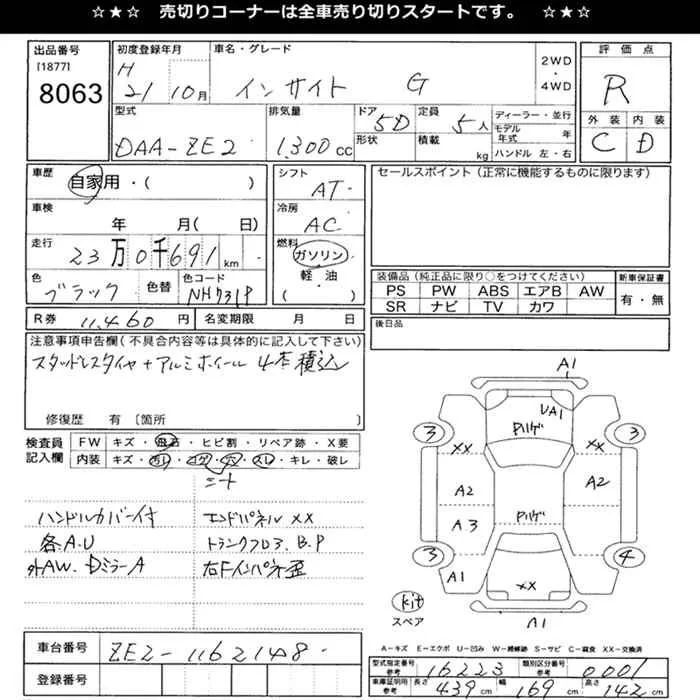 ☆★☆ 売切りコーナーは全車売り切りスタートです。 ☆★☆
出品番号 初度登録年月 車名・グレード 2WD・4WD 評価点
[1877] H
8063 21 10月 インサイト G R
型式 排気量 ドア 5D 定員 5人 ディーラー・並行 外装 内装
DAA-ZE2 1,300cc 形状 積載 kg モデル年式 年 C D
ハンドル 左・右
車歴 自家用・( ) シフト AT セールスポイント(正常に機能するものに限ります)
車検 年 月( 日) 冷房 AC
走行 23万0千691km 燃料 ガソリン・軽・油・( )
色 ブラック 色替 色コード NH731P
装備品(純正品に限り○をつけてください) 新車保証書
PS PW ABS エアB AW 有・無
SR ナビ TV カワ
R券 11,460円 名変期限 月 日 後日品
注意事項申告欄(不具合内容等は具体的に記入して下さい)
スタッドレスタイヤ+アルミホイール 4本積込
修復歴 有〔箇所 〕
検査員記入欄 FW キズ・飛石・ヒビ割・リペア跡・X要
内装 キズ・汚レ・コゲ・穴・スレ・キレ・破レ
シート
ハンドルカバー付 エンドパネルXX
各A.U トランクフロア.B.P
外AW.DミラーA 右Fインパネ歪
A1
VA1
3 3
XX XX
A2 A2
A3
3 4
A1
XX
kit
スペア A1
A-キズ E-エクボ U-凹み W-補修跡 S-サビ C-腐食 XX-交換済
車台番号 ZE2-1162148
登録番号
型式指定番号 参考 16223 類別区分番号 参考 0001
車庫証明用 参考 長さ 439cm 幅 169cm 高さ 142cm